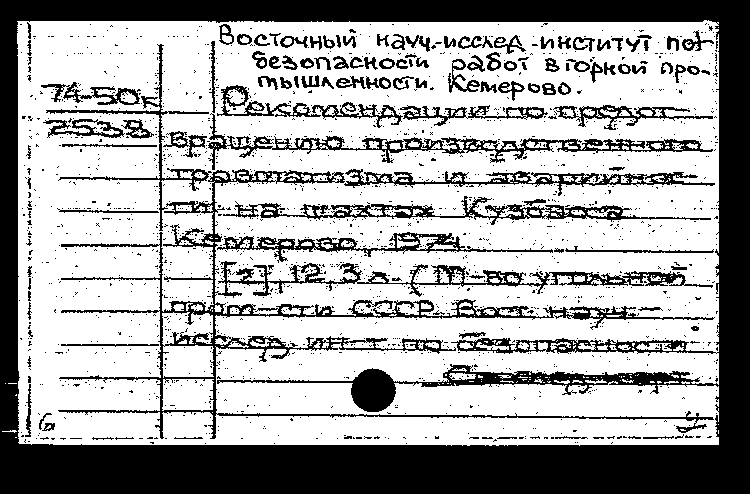 Восточный науч.-исслед. институт по
безопасности работ в горной про-
мышленности. Кемерово.
74-50к
2538
Рекомендации по предот-
вращению производственного
травматизма и аварийнос-
ти на шахтах Кузбасса
Кемерово, 1974.
[2], 12, 3 л. (М-во угольной
пром-сти СССР. Вост. науч.-
исслед. ин-т по безопасности
См. след. карт.